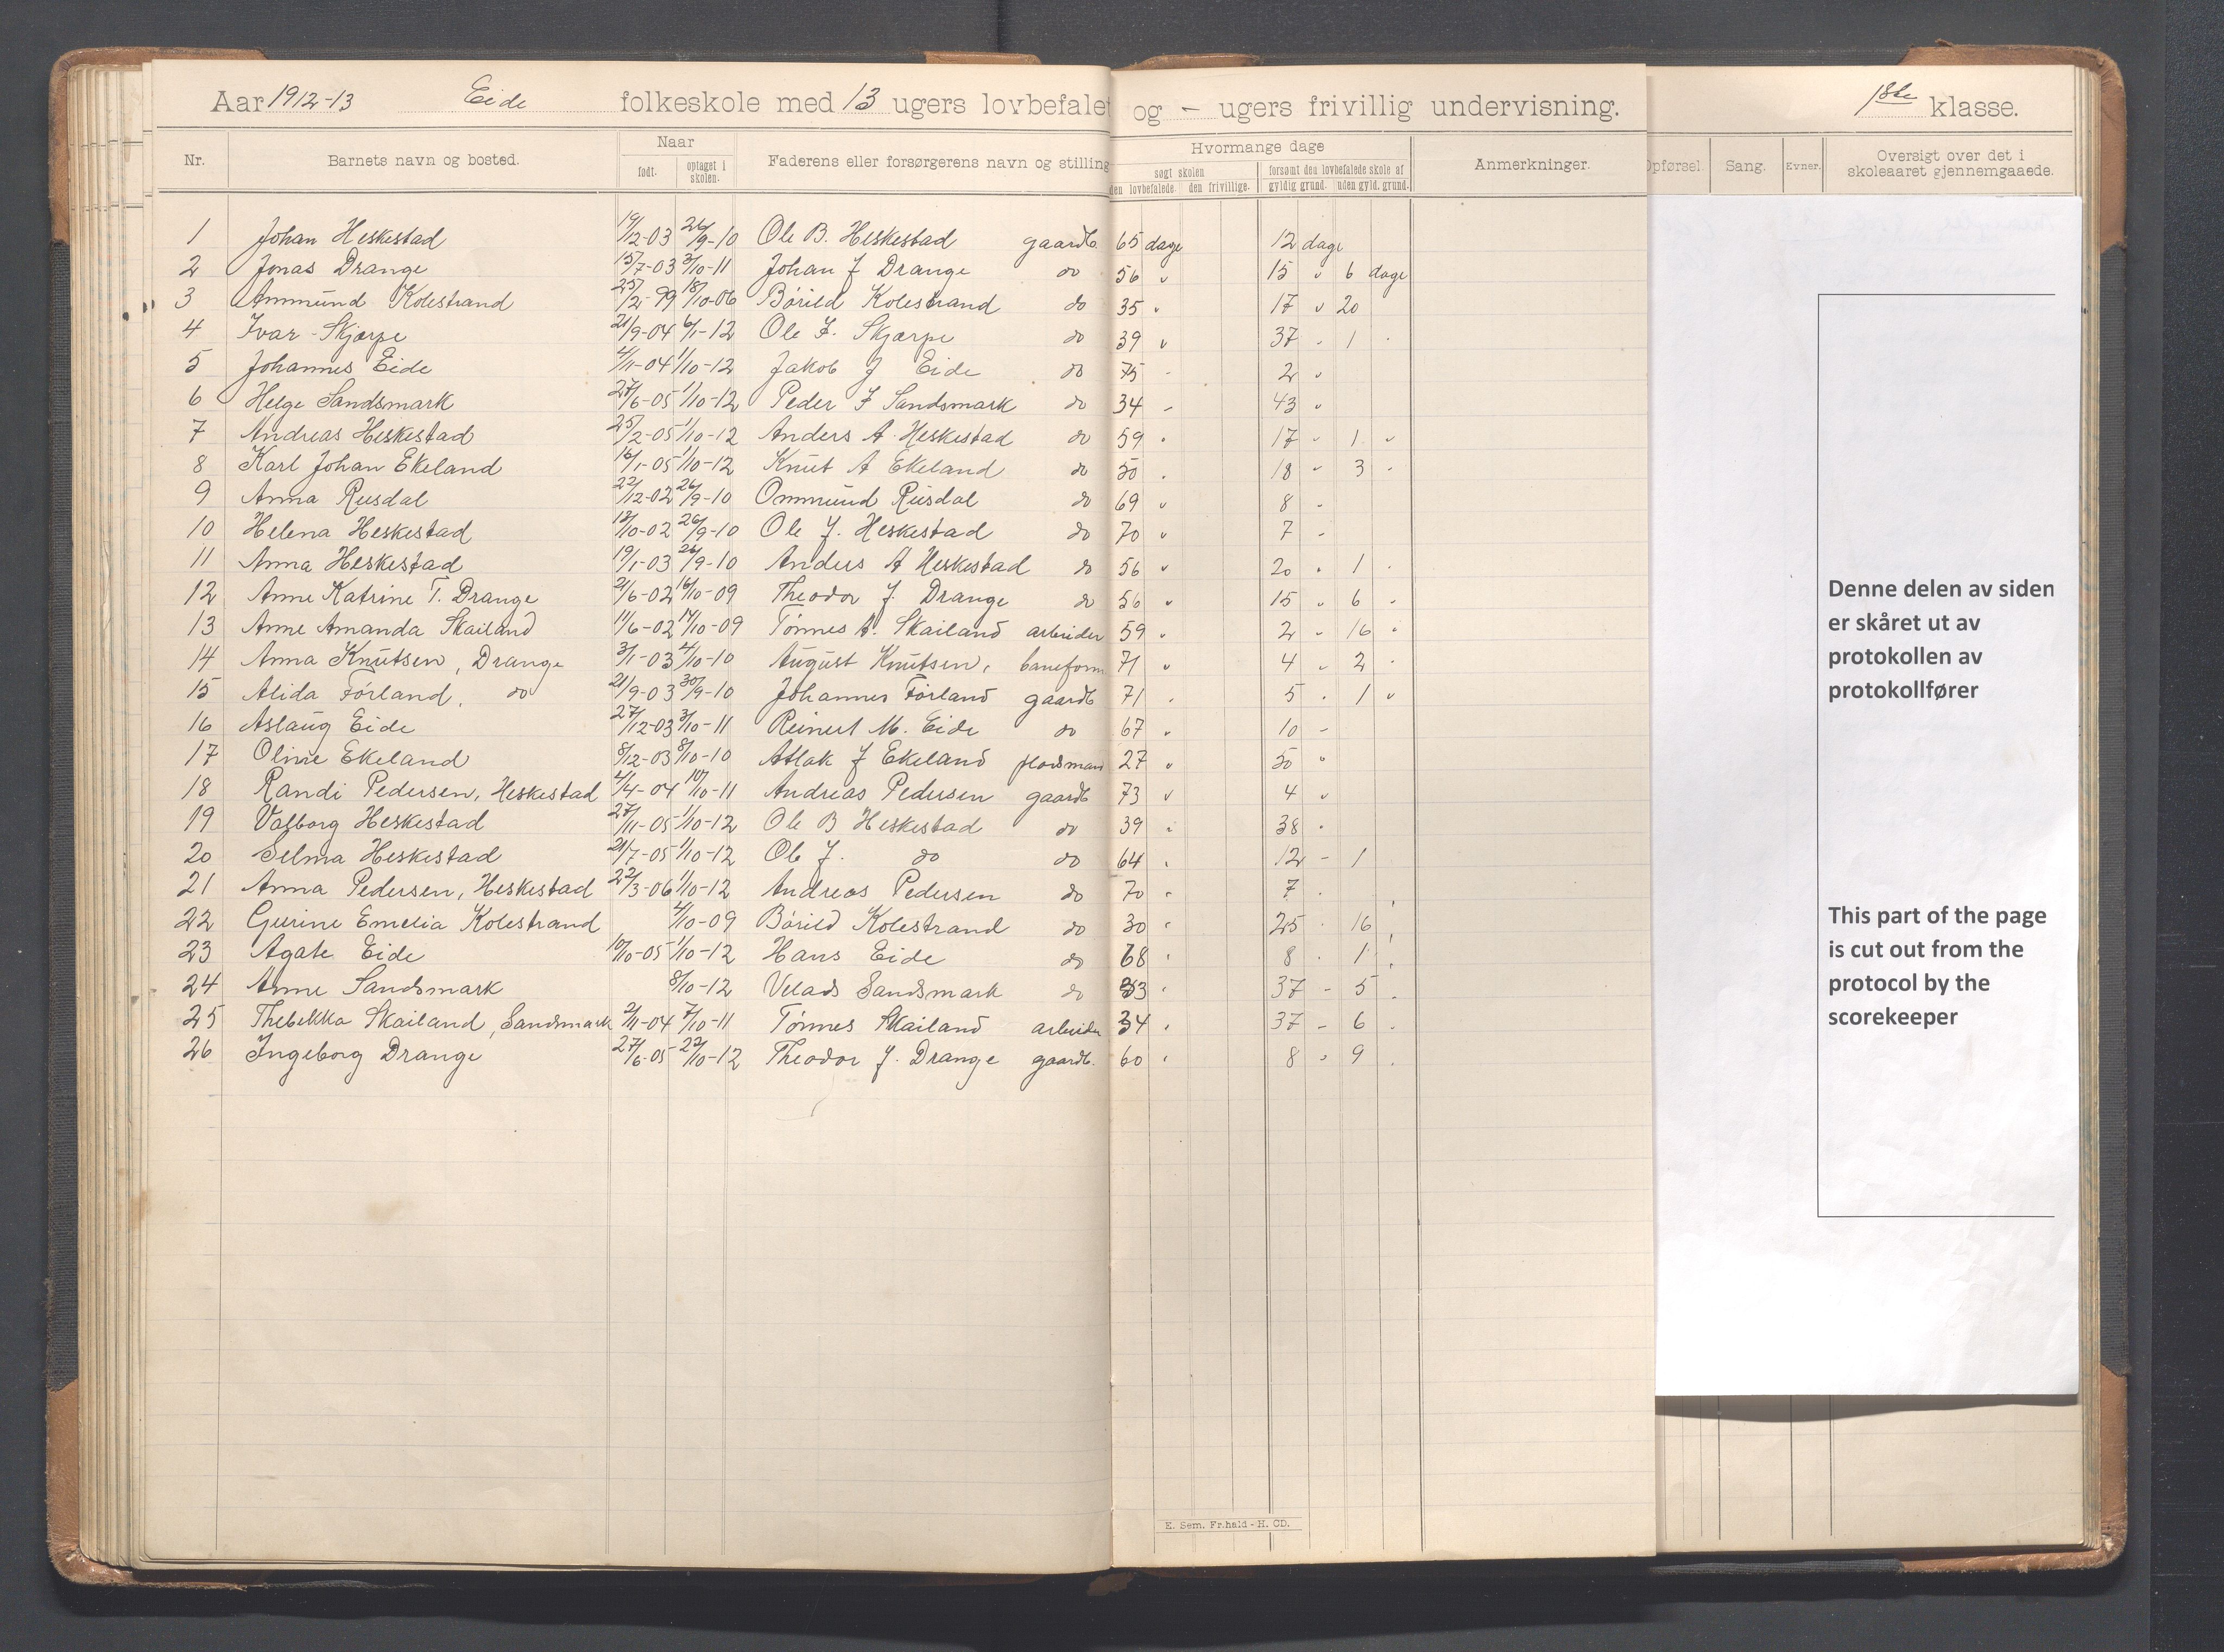 Aar 1912-13 Eide folkeskole med 13 ugers lovbefalet og - ugers frivillig undervisning. 1ste klasse.
Nr. Barnets navn og bosted. Naar født. optaget i skolen. Faderens eller forsørgerens navn og stilling Hvormange dage søgt skolen den lovbefalede. den frivillige. forsømt den lovbefalede skole af gyldig grund. uden gyld. grund. Anmerkninger. Opførsel. Sang. Evner. Oversigt over det i skoleaaret gjennemgaaede.
1 Johan Heskestad 19/12-03 26/9-10 Ole B. Heskestad gaardb 65 dage 12 dage
2 Jonas Drange 15/7-03 3/10-11 Johan J Drange do 56 " 15 " 6 dage
3 Ammund Kolestrand 25/2-99 18/10-06 Bórild Kolestrand do 35 " 17 " 20
4 Ivar Skjærpe 21/9-04 6/1-12 Ole F. Skjærpe do 39 " 37 - 1 -
5 Johannes Eide 4/11-04 1/10-12 Jakob J Eide do 75 - 2 "
6 Helge Sandsmark 27/6-05 1/10-12 Peder F Sandsmark do 34 - 43 "
7 Andreas Heskestad 25/2-05 1/10-12 Anders A. Heskestad do 59 " 17 " 1 "
8 Karl Johan Ekeland 16/1-05 1/10-12 Knut A Ekeland do 50 . 18 " 3 -
9 Anna Rusdal 22/12-02 26/9-10 Ommund Rusdal do 69 " 8 -
10 Helena Heskestad 13/10-02 26/9-10 Ole J. Heskestad do 70 " 7 -
11 Anna Heskestad 19/1-03 26/9-10 Anders A Heskestad do 56 " 20 . 1 .
12 Anne Katrine T. Drange 21/6-02 16/10-09 Theodor J. Drange do 56 " 15 " 6 -
13 Anne Amanda Skailand 11/6-02 14/10-09 Tónnes A. Skailand arbeider 59 " 2 - 16 "
14 Anna Knutsen, Drange 3/1-03 4/10-10 August Knutsen, baneform 71 " 4 - 2 -
15 Alida Fórland, do 21/9-03 30/9-10 Johannes Fórland gaardb 71 . 5 . 1 "
16 Aslaug Eide 27/12-03 3/10-11 Reinert M. Eide do 67 " 10 -
17 Oline Ekeland 8/12-03 8/10-10 Atlak J Ekeland plodsman 27 " 50 "
18 Randi Pedersen, Heskestad 4/4-04 10/10-11 Andreas Pedersen gaardb 73 " 4 "
19 Valborg Heskestad 27/11-05 1/10-12 Ole B Heskestad do 39 " 38 .
20 Selma Heskestad 21/7-05 1/10-12 Ole J. do do 64 . 12 - 1
21 Anna Pedersen, Heskestad 22/3-06 1/10-12 Andreas Pedersen do 70 " 7 .
22 Gurine Emelia Kolestrand 4/10-09 Bórild Kolestrand do 30 " 25 . 16 .
23 Agate Eide 10/10-05 1/10-12 Hans Eide do 68 . 8 . 1 .
24 Anne Sandsmark 8/10-12 Velads Sandsmark do 33 . 37 - 5 .
25 Thebekka Skailand, Sandsmark 2/11-04 7/10-11 Tónnes Skailand arbeider 34 . 37 - 6 .
26 Ingeborg Drange 27/6-05 22/10-12 Theodor J. Drange gaardb. 60 . 8 " 9 .
E. Sem, Fr.hald - H. CD.
Denne delen av siden
er skåret ut av
protokollen av
protokollfører
This part of the page
is cut out from the
protocol by the
scorekeeper